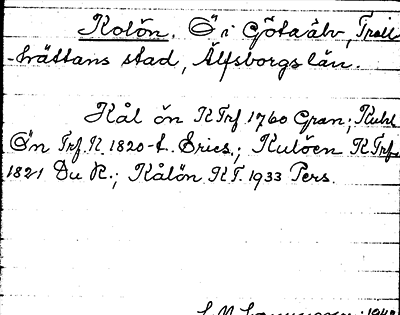 Kolön. Ö i Götaälv, Troll
-hättans stad, Älfsborgs län.
Kål ön KTrf 1760 Gran; Kuhl
Ön Trf.K. 1820-t. Erics.; Kulöen KTrf.
1821 Du R.; Kålön KT. 1933 Pers.